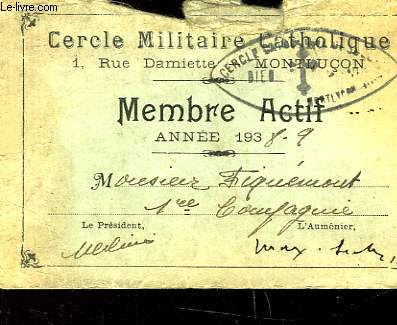 www.Le-Livre.com
Cercle Militaire Catholique
1, Rue Damiette MONTLUÇON
CERCLE
DIEU
MONTLUÇON
Membre Actif
ANNÉE 1938-9
Monsieur Fiquémont
1re Compagnie
Le Président, L'Aumônier,